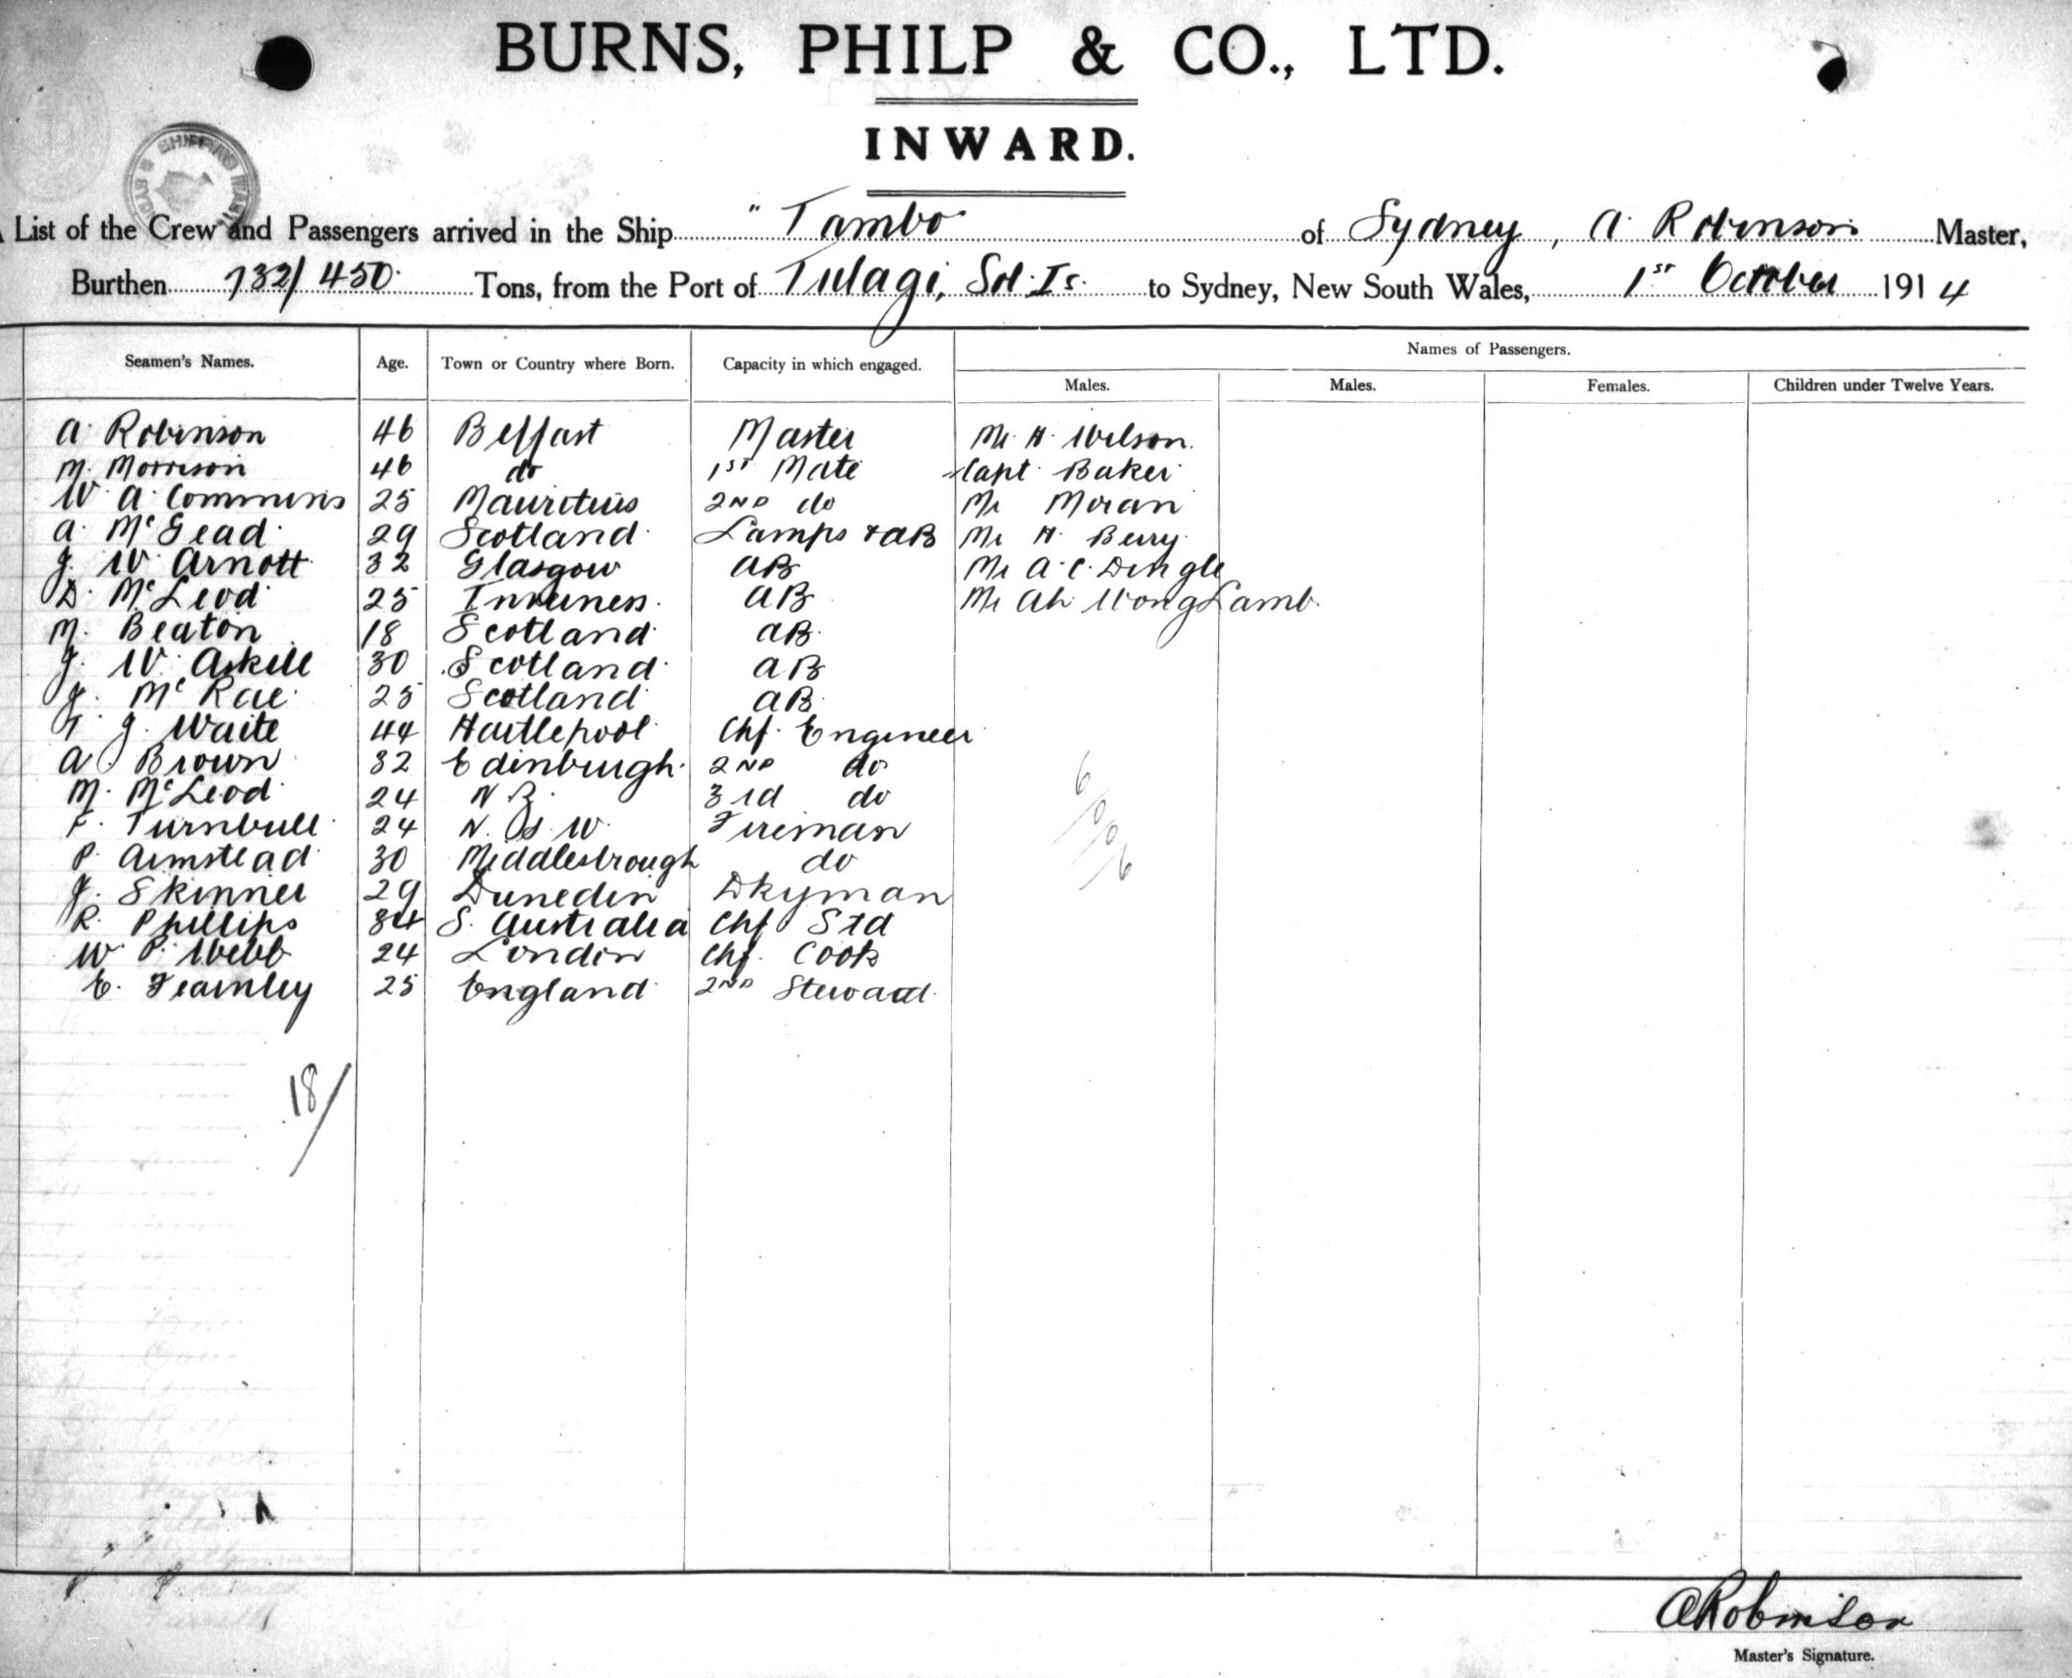 BURNS, PHILP & CO., LTD.
INWARD.
List of the Crew and Passengers arrived in the Ship "Tambo" of Sydney, A. Robinson Master,
Burthen 732/450 Tons, from the Port of Tulagi, Sol. Is. to Sydney, New South Wales, 1st October 1914
Seamen's Names. Age. Town or Country where Born. Capacity in which engaged. Names of Passengers.
Males. Males. Females. Children under Twelve Years.
A. Robinson 46 Belfast Master Mr. H. Wilson.
M. Morrison 46 do 1st Mate Capt. Baker
W. A. Commins 25 Mauritius 2nd do Mr Moran
A. McGead 29 Scotland Lamps & AB Mr H. Berry
J. W. Arnott 32 Glasgow AB Mr A. C. Dingle
D. McLeod 25 Inverness. AB Mr Ah Wong Lamb.
M. Beaton 18 Scotland AB
J. W. Askill 30 Scotland AB
J. McRae 25 Scotland AB
T. J. Waite 44 Hartlepool Chf. Engineer
A. Brown 32 Edinburgh 2nd do
M. McLeod 24 N.B. 3rd do
F. Turnbull 24 N.S.W. Fireman
P. Armstead 30 Middlesbrough do
J. Skinner 29 Dunedin Dkyman
R. Phillips 34 S. Australia Chf Std
W. P. Webb 24 London Chf. Cook
E. Fearnley 25 England 2nd Steward.
6/0/0/6
18/
ARobinson
Master's Signature.